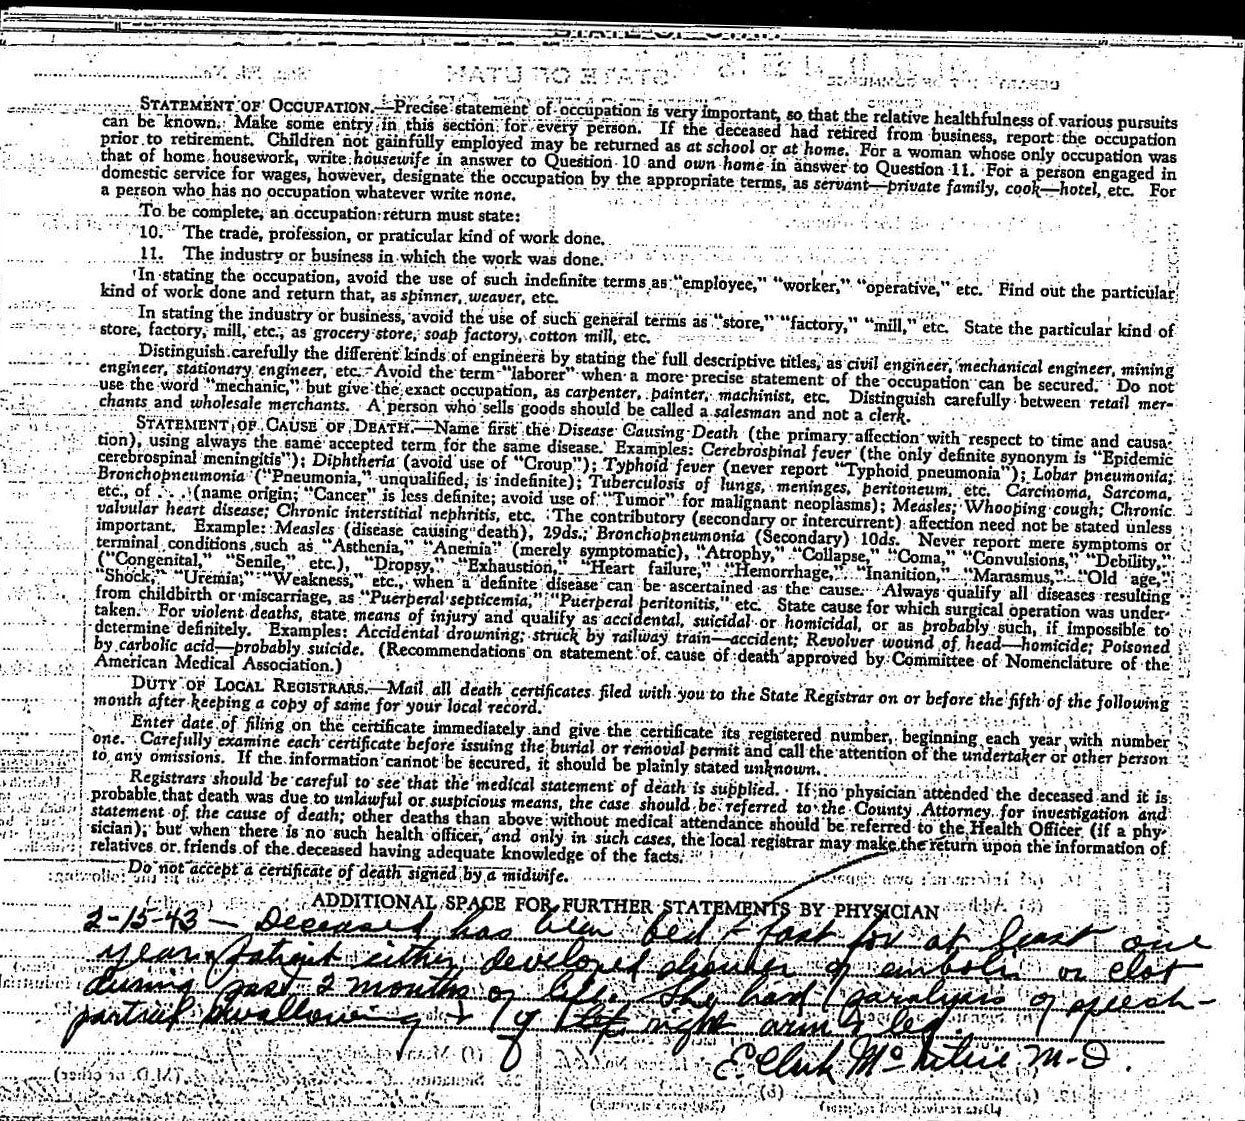 STATE OF UTAH
STATEMENT OF OCCUPATION.—Precise statement of occupation is very important, so that the relative healthfulness of various pursuits
can be known. Make some entry in this section for every person. If the deceased had retired from business, report the occupation
prior to retirement. Children not gainfully employed may be returned as at school or at home. For a woman whose only occupation was
that of home housework, write housewife in answer to Question 10 and own home in answer to Question 11. For a person engaged in
domestic service for wages, however, designate the occupation by the appropriate terms, as servant—private family, cook—hotel, etc. For
a person who has no occupation whatever write none.
To be complete, an occupation return must state:
10. The trade, profession, or praticular kind of work done.
11. The industry or business in which the work was done.
In stating the occupation, avoid the use of such indefinite terms as "employee," "worker," "operative," etc. Find out the particular
kind of work done and return that, as spinner, weaver, etc.
In stating the industry or business, avoid the use of such general terms as "store," "factory," "mill," etc. State the particular kind of
store, factory, mill, etc., as grocery store, soap factory, cotton mill, etc.
Distinguish carefully the different kinds of engineers by stating the full descriptive titles, as civil engineer, mechanical engineer, mining
engineer, stationary engineer, etc. Avoid the term "laborer" when a more precise statement of the occupation can be secured. Do not
use the word "mechanic," but give the exact occupation, as carpenter, painter, machinist, etc. Distinguish carefully between retail mer-
chants and wholesale merchants. A person who sells goods should be called a salesman and not a clerk.
STATEMENT OF CAUSE OF DEATH.—Name first the Disease Causing Death (the primary affection with respect to time and causa-
tion), using always the same accepted term for the same disease. Examples: Cerebrospinal fever (the only definite synonym is "Epidemic
cerebrospinal meningitis"); Diphtheria (avoid use of "Croup"); Typhoid fever (never report "Typhoid pneumonia"); Lobar pneumonia;
Bronchopneumonia ("Pneumonia," unqualified, is indefinite); Tuberculosis of lungs, meninges, peritoneum, etc. Carcinoma, Sarcoma,
etc., of . . . (name origin; "Cancer" is less definite; avoid use of "Tumor" for malignant neoplasms); Measles; Whooping cough; Chronic
valvular heart disease; Chronic interstitial nephritis, etc. The contributory (secondary or intercurrent) affection need not be stated unless
important. Example: Measles (disease causing death), 29ds.; Bronchopneumonia (Secondary) 10ds. Never report mere symptoms or
terminal conditions such as "Asthenia," "Anemia" (merely symptomatic), "Atrophy," "Collapse," "Coma," "Convulsions," "Debility,"
("Congenital," "Senile," etc.), "Dropsy," "Exhaustion," "Heart failure," "Hemorrhage," "Inanition," "Marasmus," "Old age,"
"Shock," "Uremia," "Weakness," etc., when a definite disease can be ascertained as the cause. Always qualify all diseases resulting
from childbirth or miscarriage, as "Puerperal septicemia," "Puerperal peritonitis," etc. State cause for which surgical operation was under-
taken. For violent deaths, state means of injury and qualify as accidental, suicidal or homicidal, or as probably such, if impossible to
determine definitely. Examples: Accidental drowning; struck by railway train—accident; Revolver wound of head—homicide; Poisoned
by carbolic acid—probably suicide. (Recommendations on statement of cause of death approved by Committee of Nomenclature of the
American Medical Association.)
DUTY OF LOCAL REGISTRARS.—Mail all death certificates filed with you to the State Registrar on or before the fifth of the following
month after keeping a copy of same for your local record.
Enter date of filing on the certificate immediately and give the certificate its registered number, beginning each year with number
one. Carefully examine each certificate before issuing the burial or removal permit and call the attention of the undertaker or other person
to any omissions. If the information cannot be secured, it should be plainly stated unknown.
Registrars should be careful to see that the medical statement of death is supplied. If no physician attended the deceased and it is
probable that death was due to unlawful or suspicious means, the case should be referred to the County Attorney for investigation and
statement of the cause of death; other deaths than above without medical attendance should be referred to the Health Officer (if a phy-
sician); but when there is no such health officer, and only in such cases, the local registrar may make the return upon the information of
relatives or friends of the deceased having adequate knowledge of the facts.
Do not accept a certificate of death signed by a midwife.
ADDITIONAL SPACE FOR FURTHER STATEMENTS BY PHYSICIAN
2-15-43 — Deceased has been bed-fast for at least one
year. Patient either developed shower of emboli or clot
during past 2 months of life. She had paralysis of speech—
partial swallowing & of right arm & leg.
E. Clark McIntire M-D.